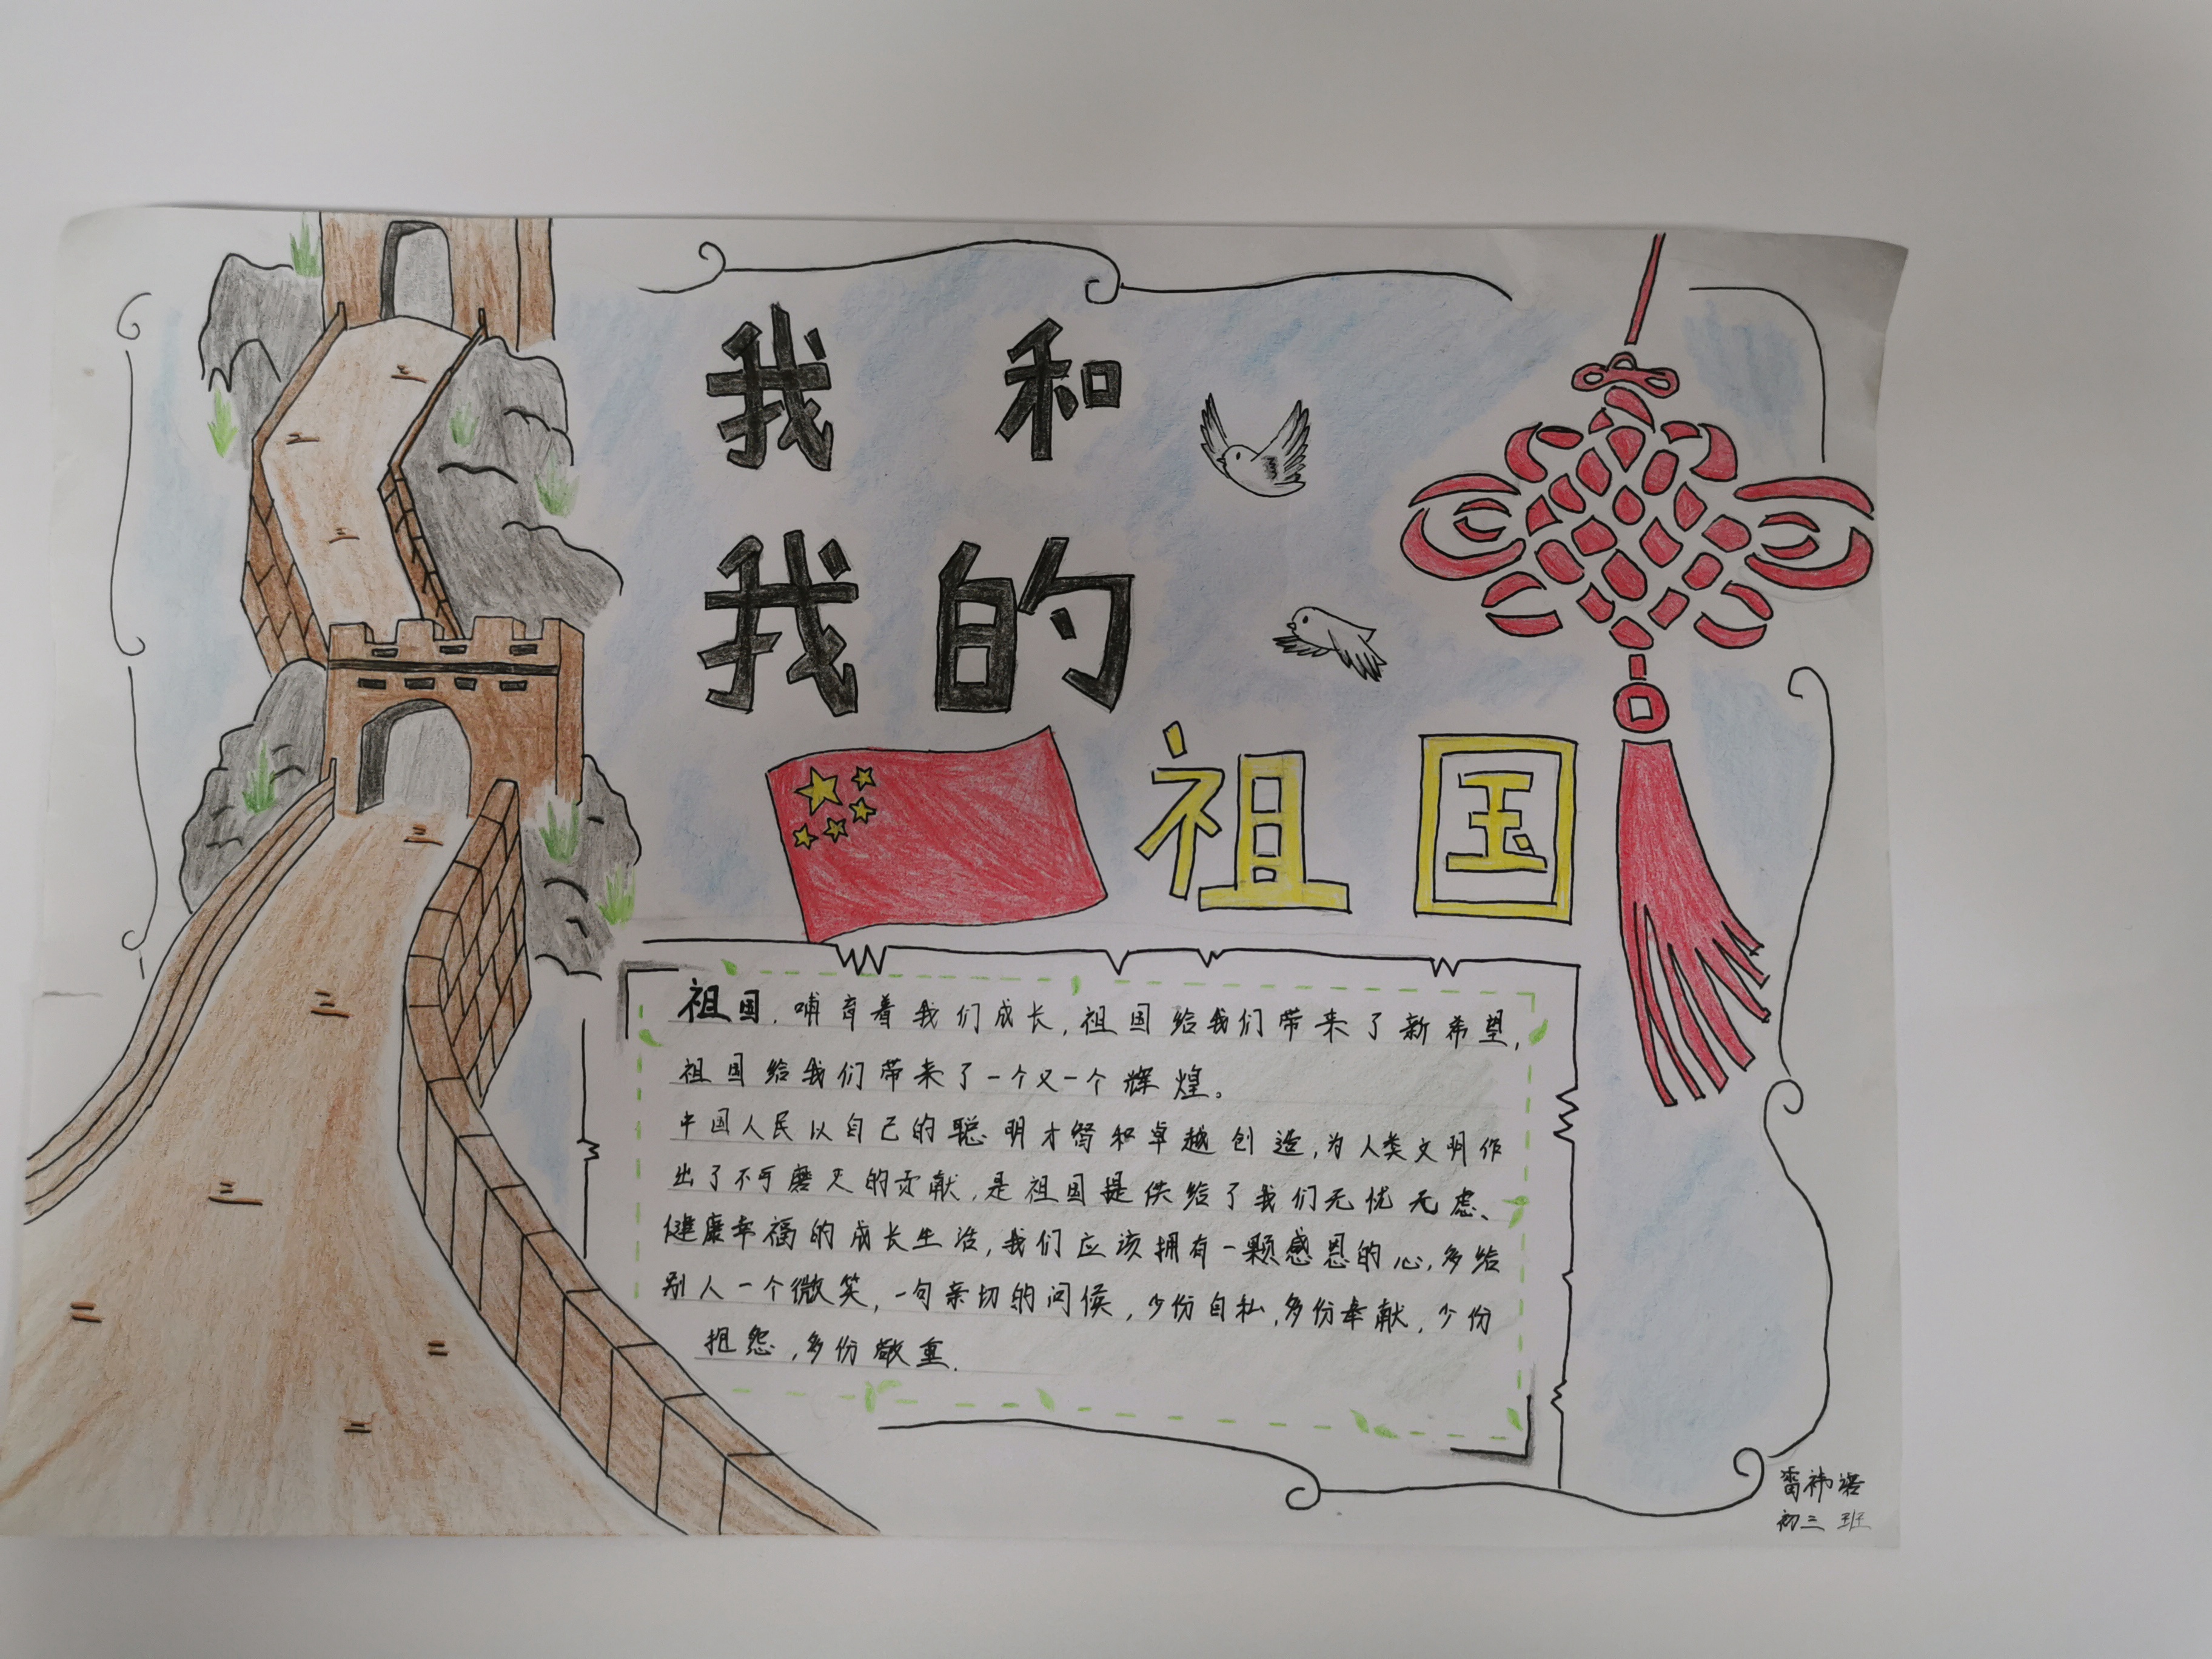 我和
我的
祖国
祖国.哺育着我们成长,祖国给我们带来了新希望,
祖国给我们带来了一个又一个辉煌。
中国人民以自己的聪明才智和卓越创造,为人类文明作
出了不可磨灭的贡献,是祖国提供给了我们无忧无虑、
健康幸福的成长生活,我们应该拥有一颗感恩的心,多给
别人一个微笑,一句亲切的问候,少份自私,多份奉献,少份
抱怨,多份敬重.
雷祎诺
初三 班